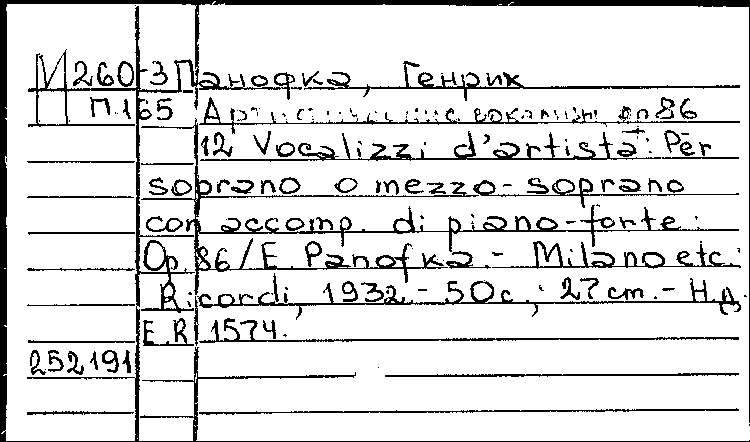 И260-3 Панофка, Генрих
П.165 Артистические вокализы, оп 86
12 Vocalizzi d'artista: Per
soprano o mezzo-soprano
con accomp. di piano-forte:
Op. 86/E. Panofka. - Milano etc.:
Ricordi, 1932. - 50 c.; 27 cm. - Н.Д.
E.R. 1574.
252191